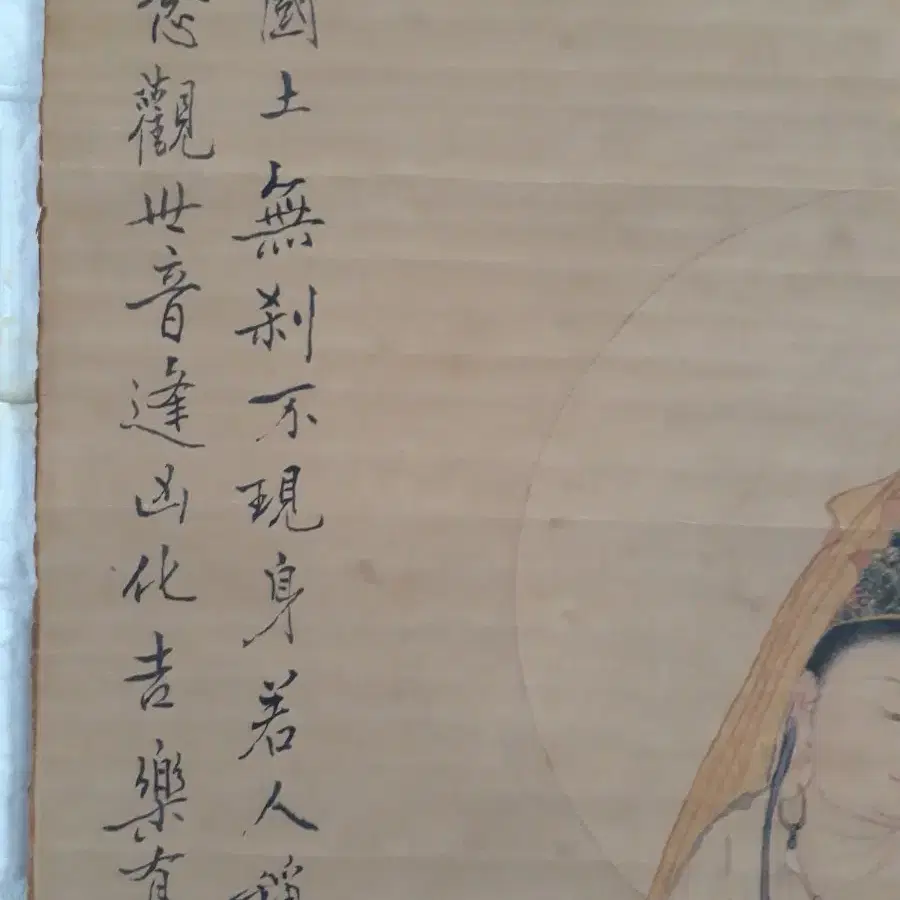 國土無刹不現身若人稱
悲觀世音逢凶化吉樂有